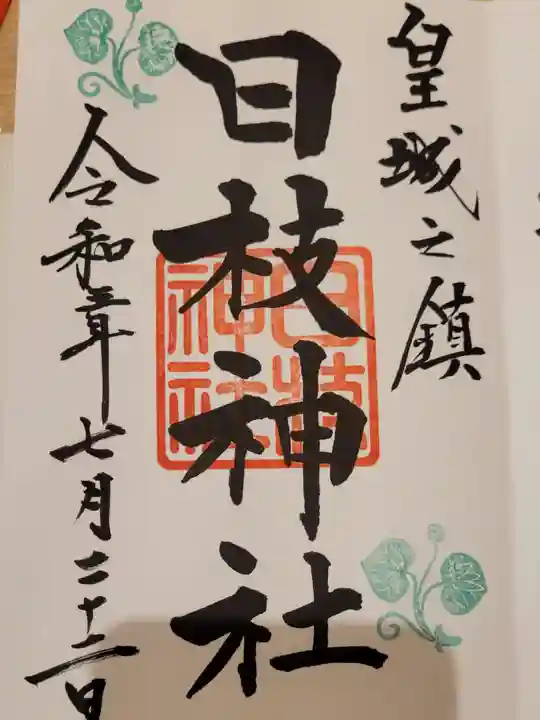 皇城之鎮
日枝神社
令和年七月二十二日
日枝
神社